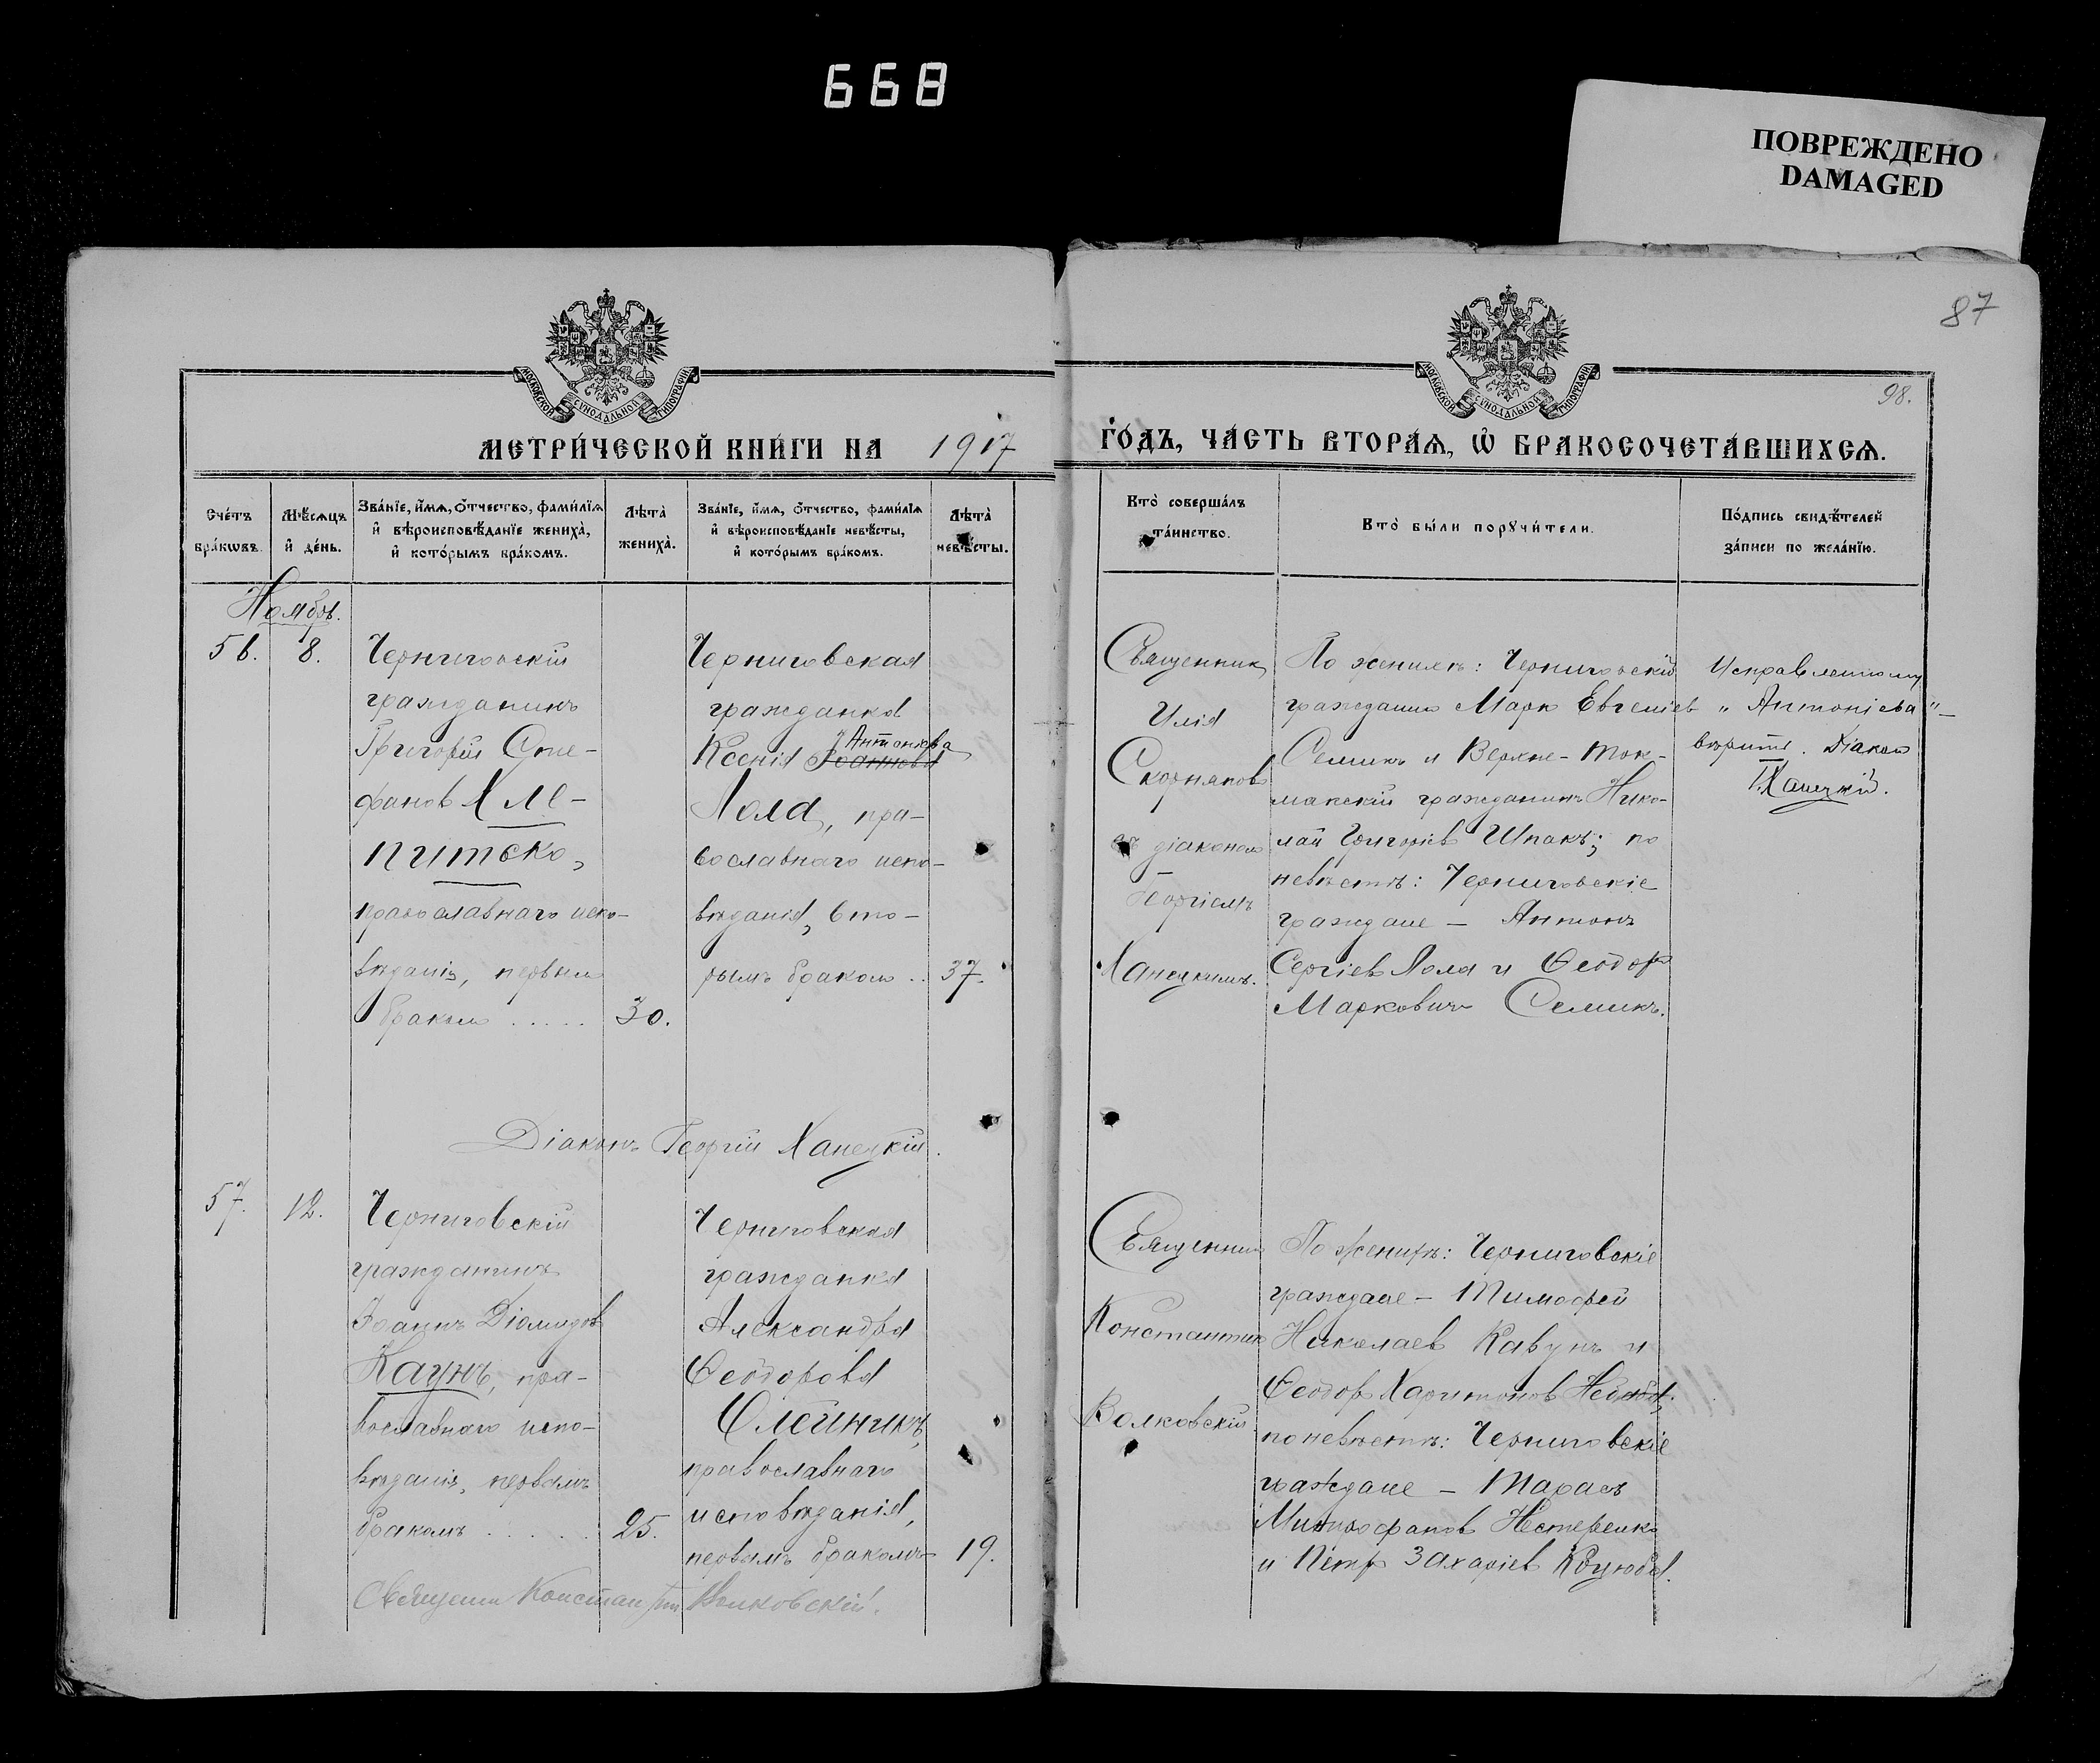 668
ПОВРЕЖДЕНО
DAMAGED
87
98.
МОСКОВСКОЙ СѴНОДАЛЬНОЙ ТИПОГРАФІИ
МОСКОВСКОЙ СѴНОДАЛЬНОЙ ТИПОГРАФІИ
МЕТРИ́ЧЕСКОЙ КНИ́ГИ НА 1917
ГО́ДЪ, ЧА́СТЬ ВТОРА́Ѧ, Ѡ҆ БРАКОСОЧЕТА́ВШИХСѦ.
Сче́тъ
бра́кѡвъ.
Мѣ́сѧцъ
и҆ де́нь.
Зва́нїе, и҆́мѧ, о҆́тчество, фами́лїѧ
и҆ вѣроисповѣ́данїе жениха̀,
и҆ кото́рымъ бра́комъ.
Лѣта̀
жениха̀.
Зва́нїе, и҆́мѧ, о҆́тчество, фами́лїѧ
и҆ вѣроисповѣ́данїе невѣ́сты,
и҆ кото́рымъ бра́комъ.
Лѣта̀
невѣ́сты.
Кто̀ соверша́лъ
та́инство.
Кто̀ бы́ли порꙋчи́тели.
По́дпись свидѣ́телей
за́писи по жела́нїю.
Ноябрь.
56.
8.
Черниговскій
гражданинъ
Григорій Сте-
фановъ Хле-
питько,
православнаго испо-
вѣданія, первымъ
бракомъ . . . . .
30.
Черниговская
гражданка
Антонiева
Ксенія Іоаннова
Лола, пра-
вославнаго испо-
вѣданія, вто-
рымъ бракомъ ..
37.
Священник
Илія
Скорняков
съ діаконом
Георгіемъ
Ханецкимъ.
По женихѣ: Черниговскій
гражданин Марк Евгеніев
Семикъ и Верхне-Ток-
макскій гражданинъ Нико-
лай Григорьев Шпакъ; по
невѣстѣ: Черниговскіе
граждане - Антонъ
Сергіев Лола и Ѳеодор
Маркович Семикъ.
Исправленному
„Антоніева"-
вѣрить. Діакон
Г. Ханецкій.
Діаконъ Георгій Ханецкій.
57.
12.
Черниговскій
гражданинъ
Іоаннъ Діомидов
Каунъ, пра-
вославнаго испо-
вѣданія, первымъ
бракомъ . . . . . .
25.
Черниговская
гражданка
Александра
Ѳеодорова
Олейникъ,
православнаго
исповѣданія,
первымъ бракомъ
19.
Священник
Константин
Волковскій
По женихѣ: Черниговскіе
граждане - Тимофей
Николаев Кавунъ и
Ѳеодор Харитонов
по невѣстѣ: Черниговскіе
граждане - Тарас
Митрофанов Нестеренко
и Петр Захаріев
Священник Константин Волковскій.